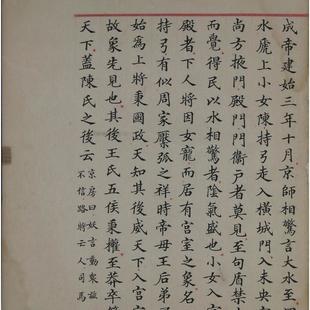 成帝建始三年十月京師相驚言大水至
水虒上小女陳持弓走入橫城門入未央
尚方掖門殿門門衞戶者莫見至句盾禁
而覺得民以水相驚者陰氣盛也小女入宮
殿者下人將因女寵而居有宮室之象名
持弓有似周家檿弧之祥時帝母王后弟
始為上將秉國政天知其後威天下入宮
故象先見也其後王氏五侯秉權至莽卒篡
天下蓋陳氏之後云
京房曰妖言動衆茲
不信路將亡人司馬